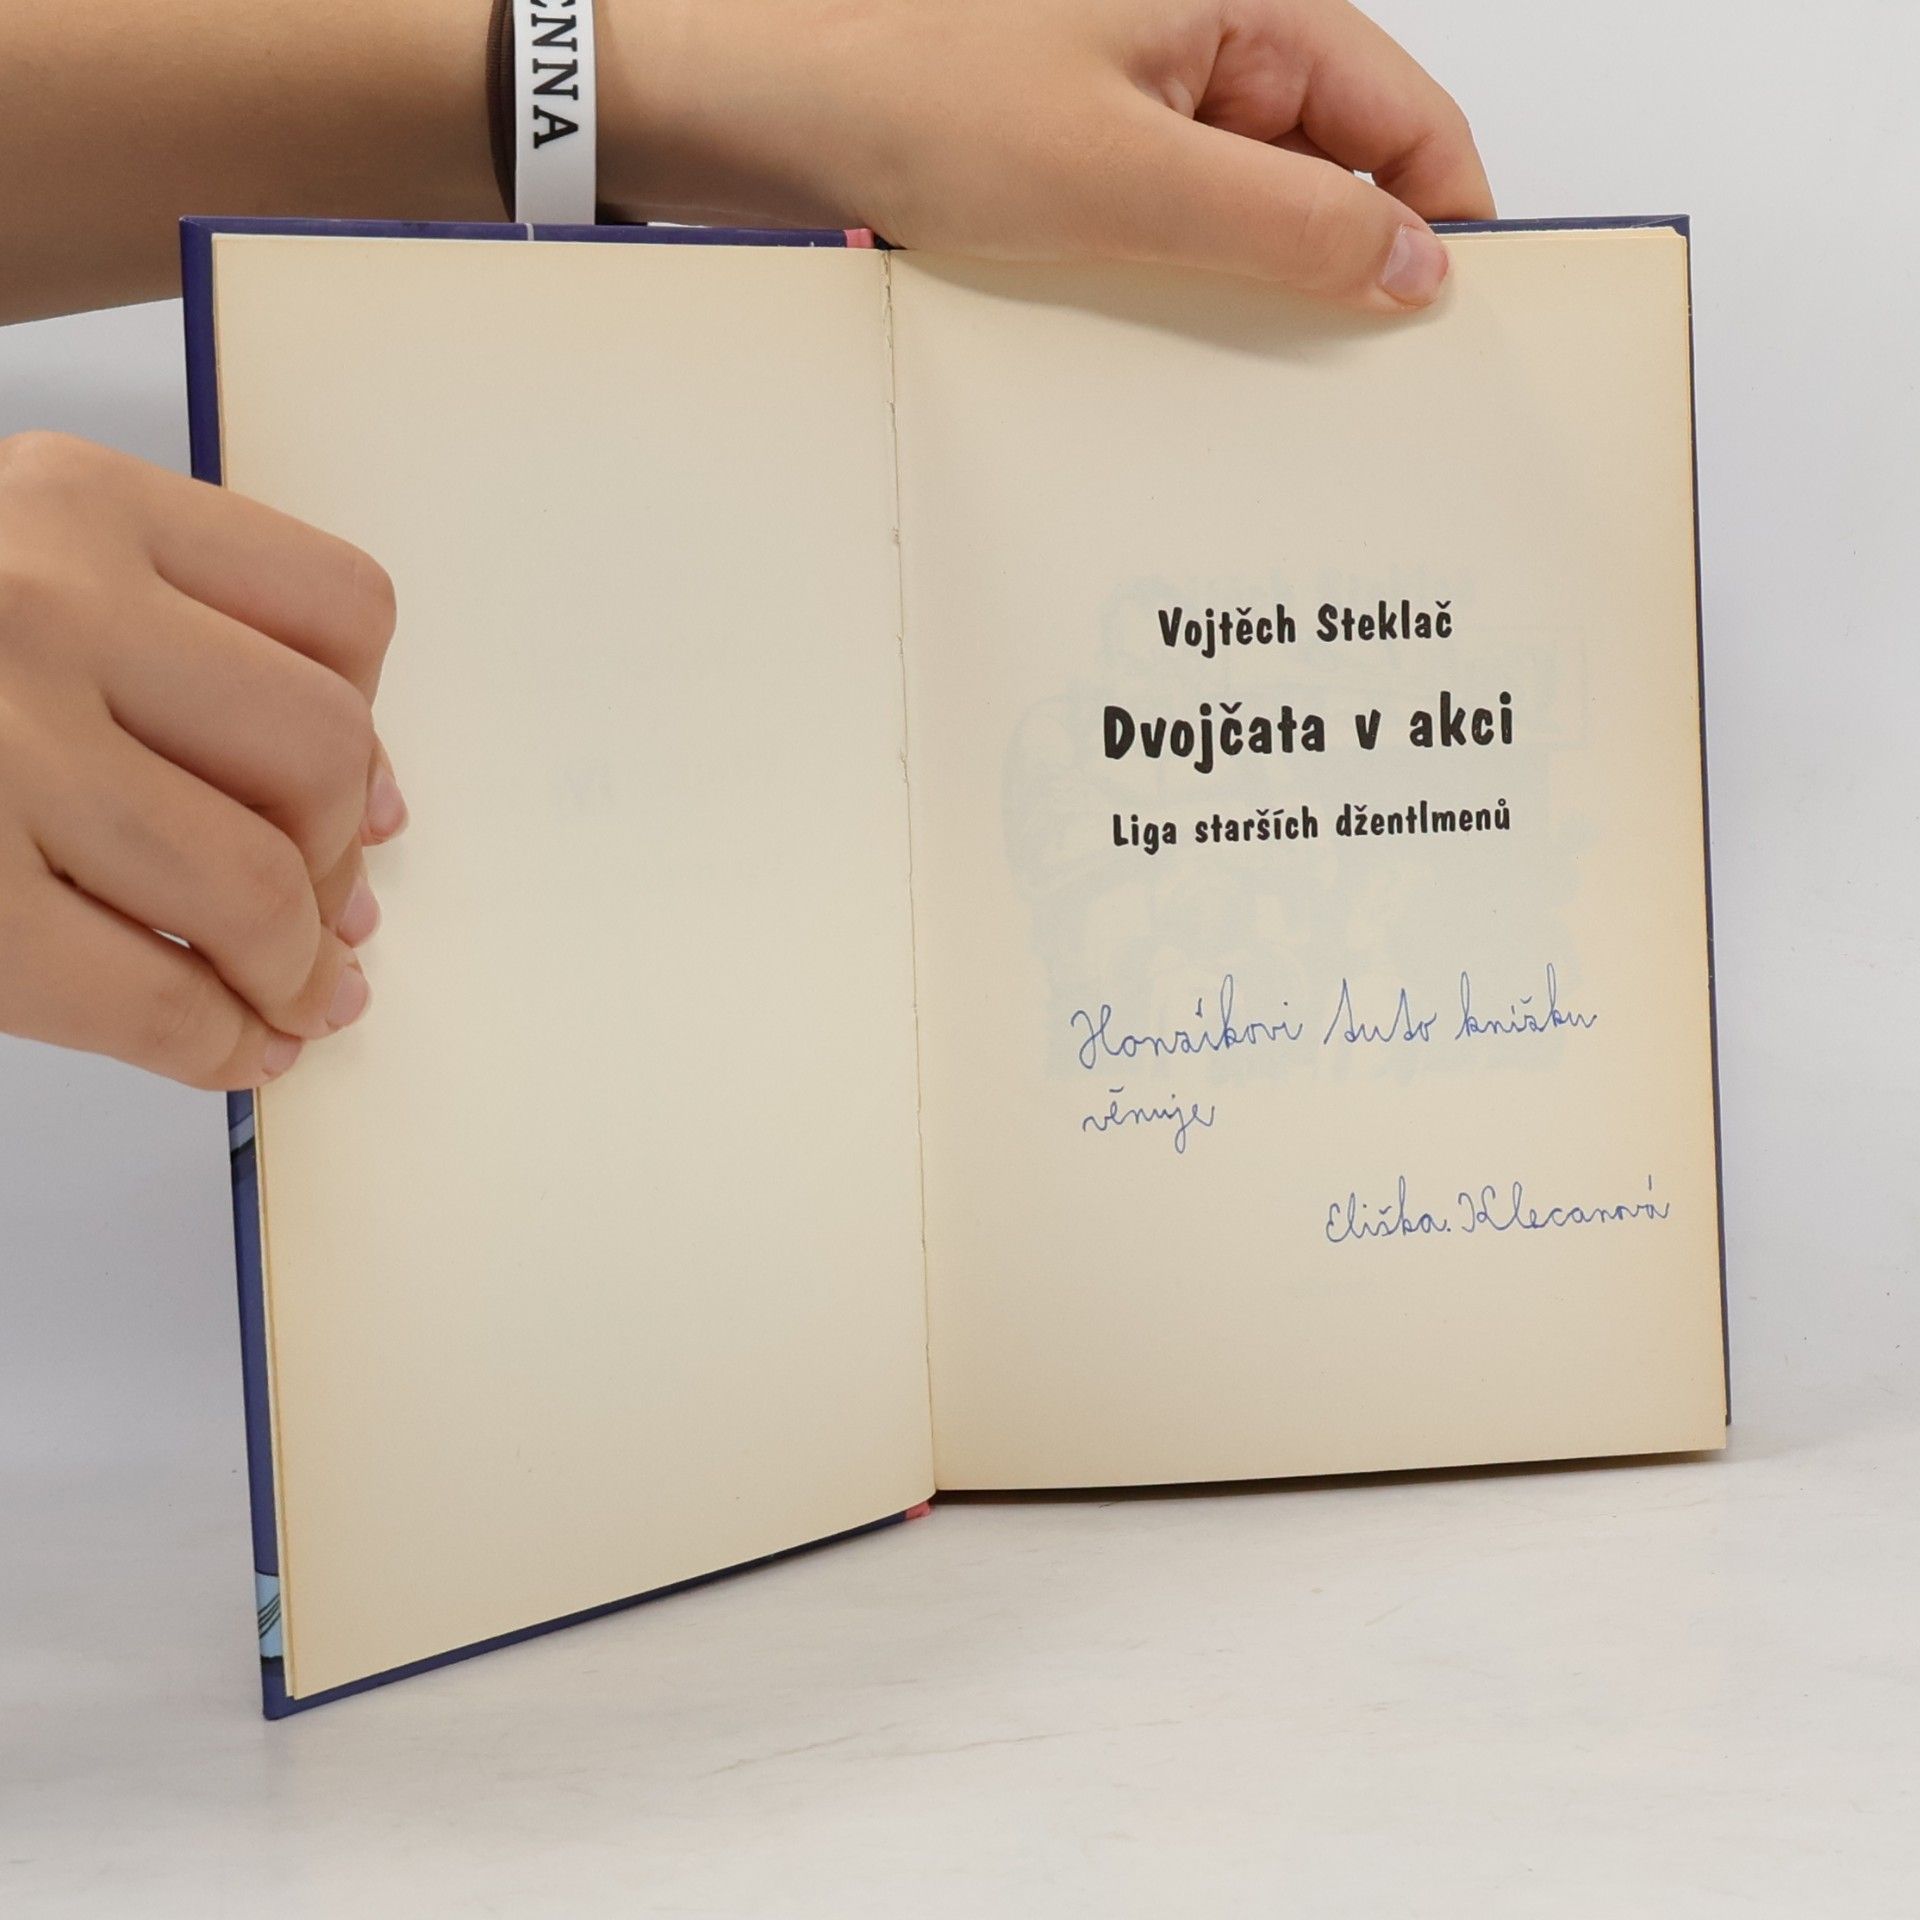 ENNA
Vojtěch Steklač
Dvojčata v akci
Liga starších džentlmenů
Honzíkovi tuto knížku
věnuje
Eliška Klecanová